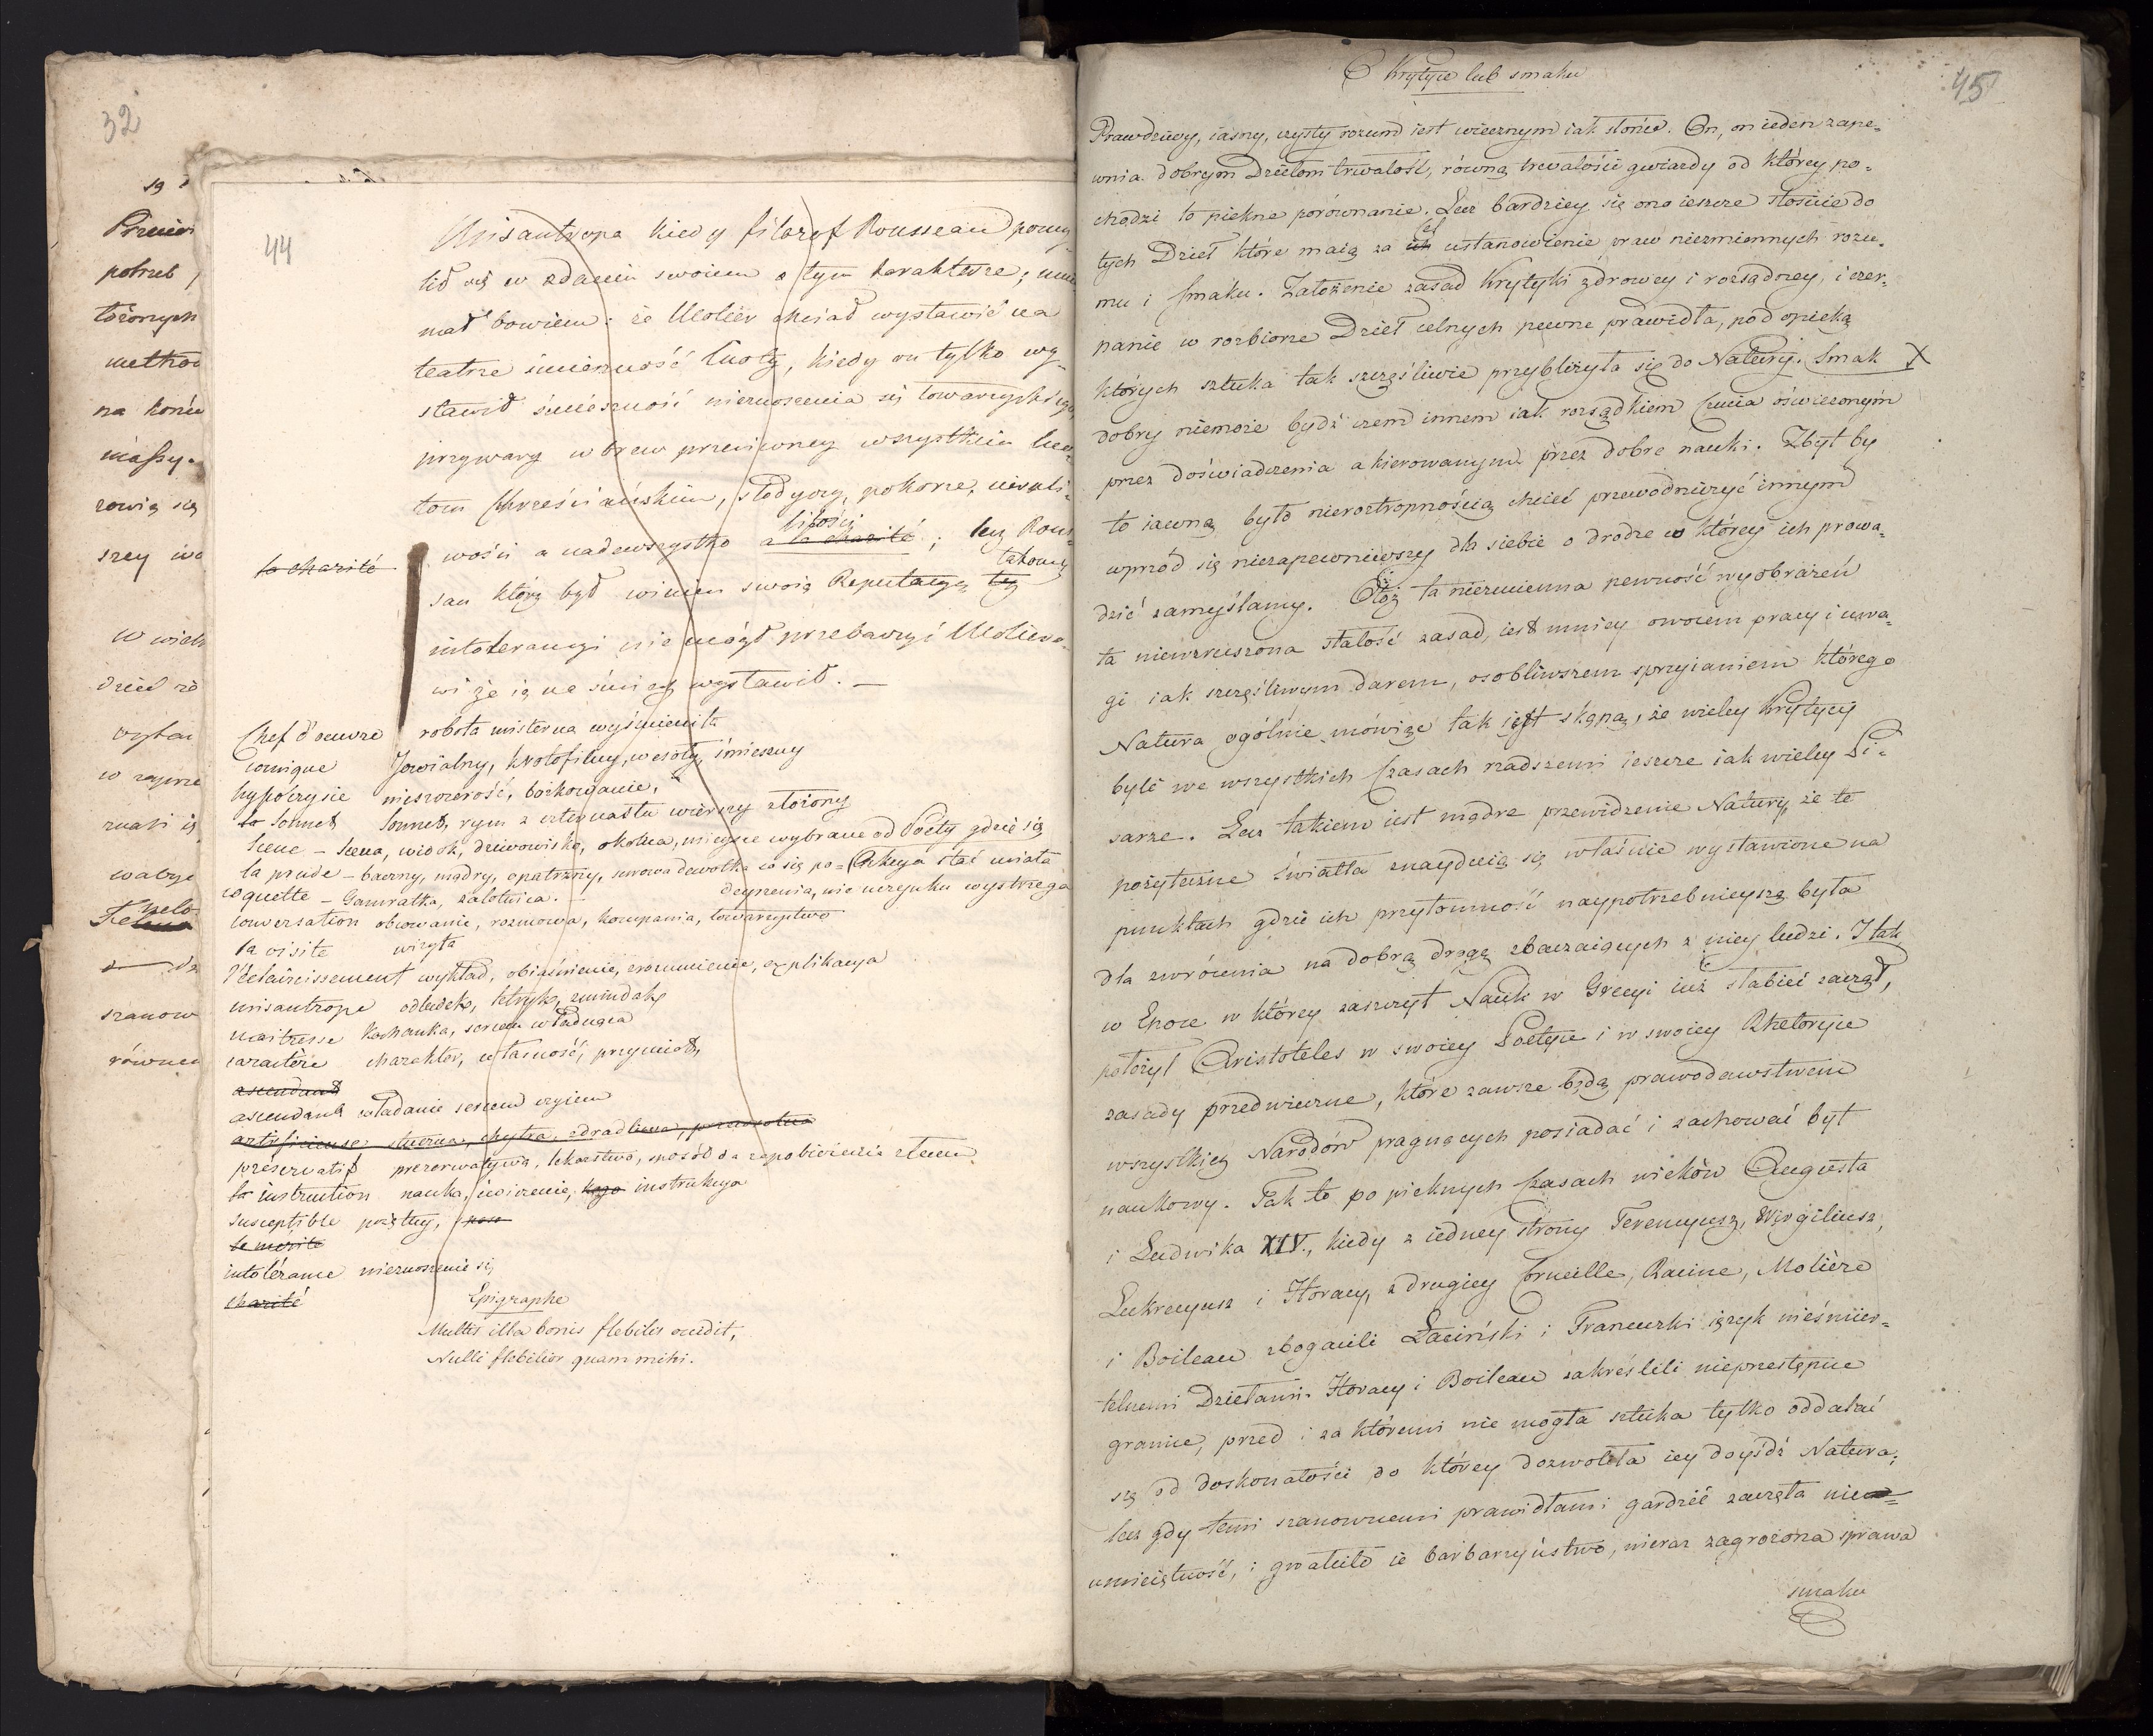 32
są
Pierw
potrzeb
tożonych
method
na końcu
massy.
rowią się
szey
W wielu
dzieł
w
znaki
wabye
szanow
równem
44
Misantropa kiedy filozof Rousseau pomy
lił się w zdaniu swoiem o tym karakterze; mni
mał bowiem: że Molier chciał wystawić na
teatrze śmieszność Cnoty, kiedy on tylko wy-
stawił śmieszność nieznoszenia się towarzyskiego
przywary wbrew przeciwney wszystkim cno-
tom Chrześciańskim, słodyczy, pokorze, 
litości
wości a nadewszystko a la charité; lecz Rous-
la charité
takowey
sau który był winien swoią Reputacyą tey
intolerancyi nie mógł przebaczyć Moliero-
wi że ią na śmiech wystawił. —
Chef d'oeuvre robota misterna wyśmienita
comique Jowialny, krotofilny, wesoły, śmieszny
hypocrysie nieszczerość, bożkowanie,
le Sonnet Sonnet, rym z czternastu wierszy złożony
Scene – Scena, widok, dziwowisko, okolica, mieysce wybrane od Poety gdzie się
la prude – baczny, mądry, opatrzny, surowa dewotka co się po= Akcya stać miała
deyrzenia, nie uczynku wystrzega
coquette – Gamratka, zalotnica. –
conversation obcowanie, rozmowa, kompania, towarzystwo
la visite wizyta
l'éclaircissement wykład, obiaśnienie, zrozumienie, explikacya
misantrope odludek, tetryk, zmindak
maitresse Kochanka, sercem władnąca
caractère charakter, własność, przymiot,
ascendant
ascendant władanie sercem czyiem
artificieuse sztuczna, chytra, zdradliwa, przewrotna
préservatif prezerwatywa, lekarstwo, sposób do zapobieżenia złemu
la instruction nauka, ćwiczenie, instrukcya
susceptible poiętny,
le merite
intolérance nieznoszenie się
charité
Epigraphe
Multis illa bonis flebilis occidit,
Nulli flebilior quam mihi.
45
O Krytyce lub smaku
Prawdziwy, iasny, czysty rozum iest wiecznym iak słońce. On, on ieden zape=
wnia dobrym Dziełom trwałość, równą trwałości gwiazdy od którey po=
chodzi to piękne porównanie. Lecz bardziey się ono ieszcze stosuie do
cel
tych Dzieł które maią za ustanowienie praw niezmiennych rozu=
mu i smaku. Założenie zasad Krytyki zdrowey i rozsądney, i czer=
panie w rozbiorze Dzieł celnych pewne prawidła, pod opieką
których sztuka tak szczęśliwie przybliżyła się do Natury. Smak X
dobry niemoże bydź czem innem iak rozsądkiem Czucia oświeconym
przez doświadczenia a kierowanym przez dobre nauki. Zbyt by
to iawną było nieroztropnością chcieć przewodniczyć innym
wprzód się niezapewniwszy dla siebie o drodze w którey ich prowa=
dzić zamyślamy. Otóż ta niezmienna pewność wyobrażeń
ta niewzruszona stałość zasad, iest mniey owocem pracy i uwa=
gi iak szczęśliwym darem, osobliwszem sprzyianiem którego
Natura ogólnie mówiąc tak iest skąpa, że wielcy Krytycy
byli we wszystkich Czasach rzadszemi ieszcze iak wielcy Pi=
sarze. Lecz takiem iest mądre przewidzenie Natury, że te
pożyteczne światła znayduią się właśnie wystawione na
punktach gdzie ich przytomność naypotrzebnieyszą była
dla zwrócenia na dobrą drogę zbaczaiących z niey ludzi. I tak
w Epoce w którey zaszczyt Nauk w Grecyi iuż słabieć zaczął,
położył Aristoteles w swoiey Poetyce i w swoiey Rhetoryce
zasady przedwieczne, które zawsze będą prawodawstwem
wszystkich Narodów pragnących posiadać i zachować byt
naukowy. Tak to po pięknych Czasach wieków Augusta
i Ludwika XIV., kiedy z iedney strony Terencyusz, Wirgiliusz,
Lukrecyusz i Horacy, z drugiey Corneille, Racine, Molière
i Boileau zbogacili Łaciński i Francuzki ięzyk nieśmier=
telnemi Dziełami. Horacy i Boileau zakreślili nieprzestępne
granice, przed i za któremi nie mogła sztuka tylko oddalać
się od doskonałości do którey dozwoliła iey doyśdź Natura;
lecz gdy temi szanownemi prawidłami gardzić zaczęła nie=
umieiętność, i gwałcił ie barbarzyństwo, nieraz zagrożona sprawa
smaku